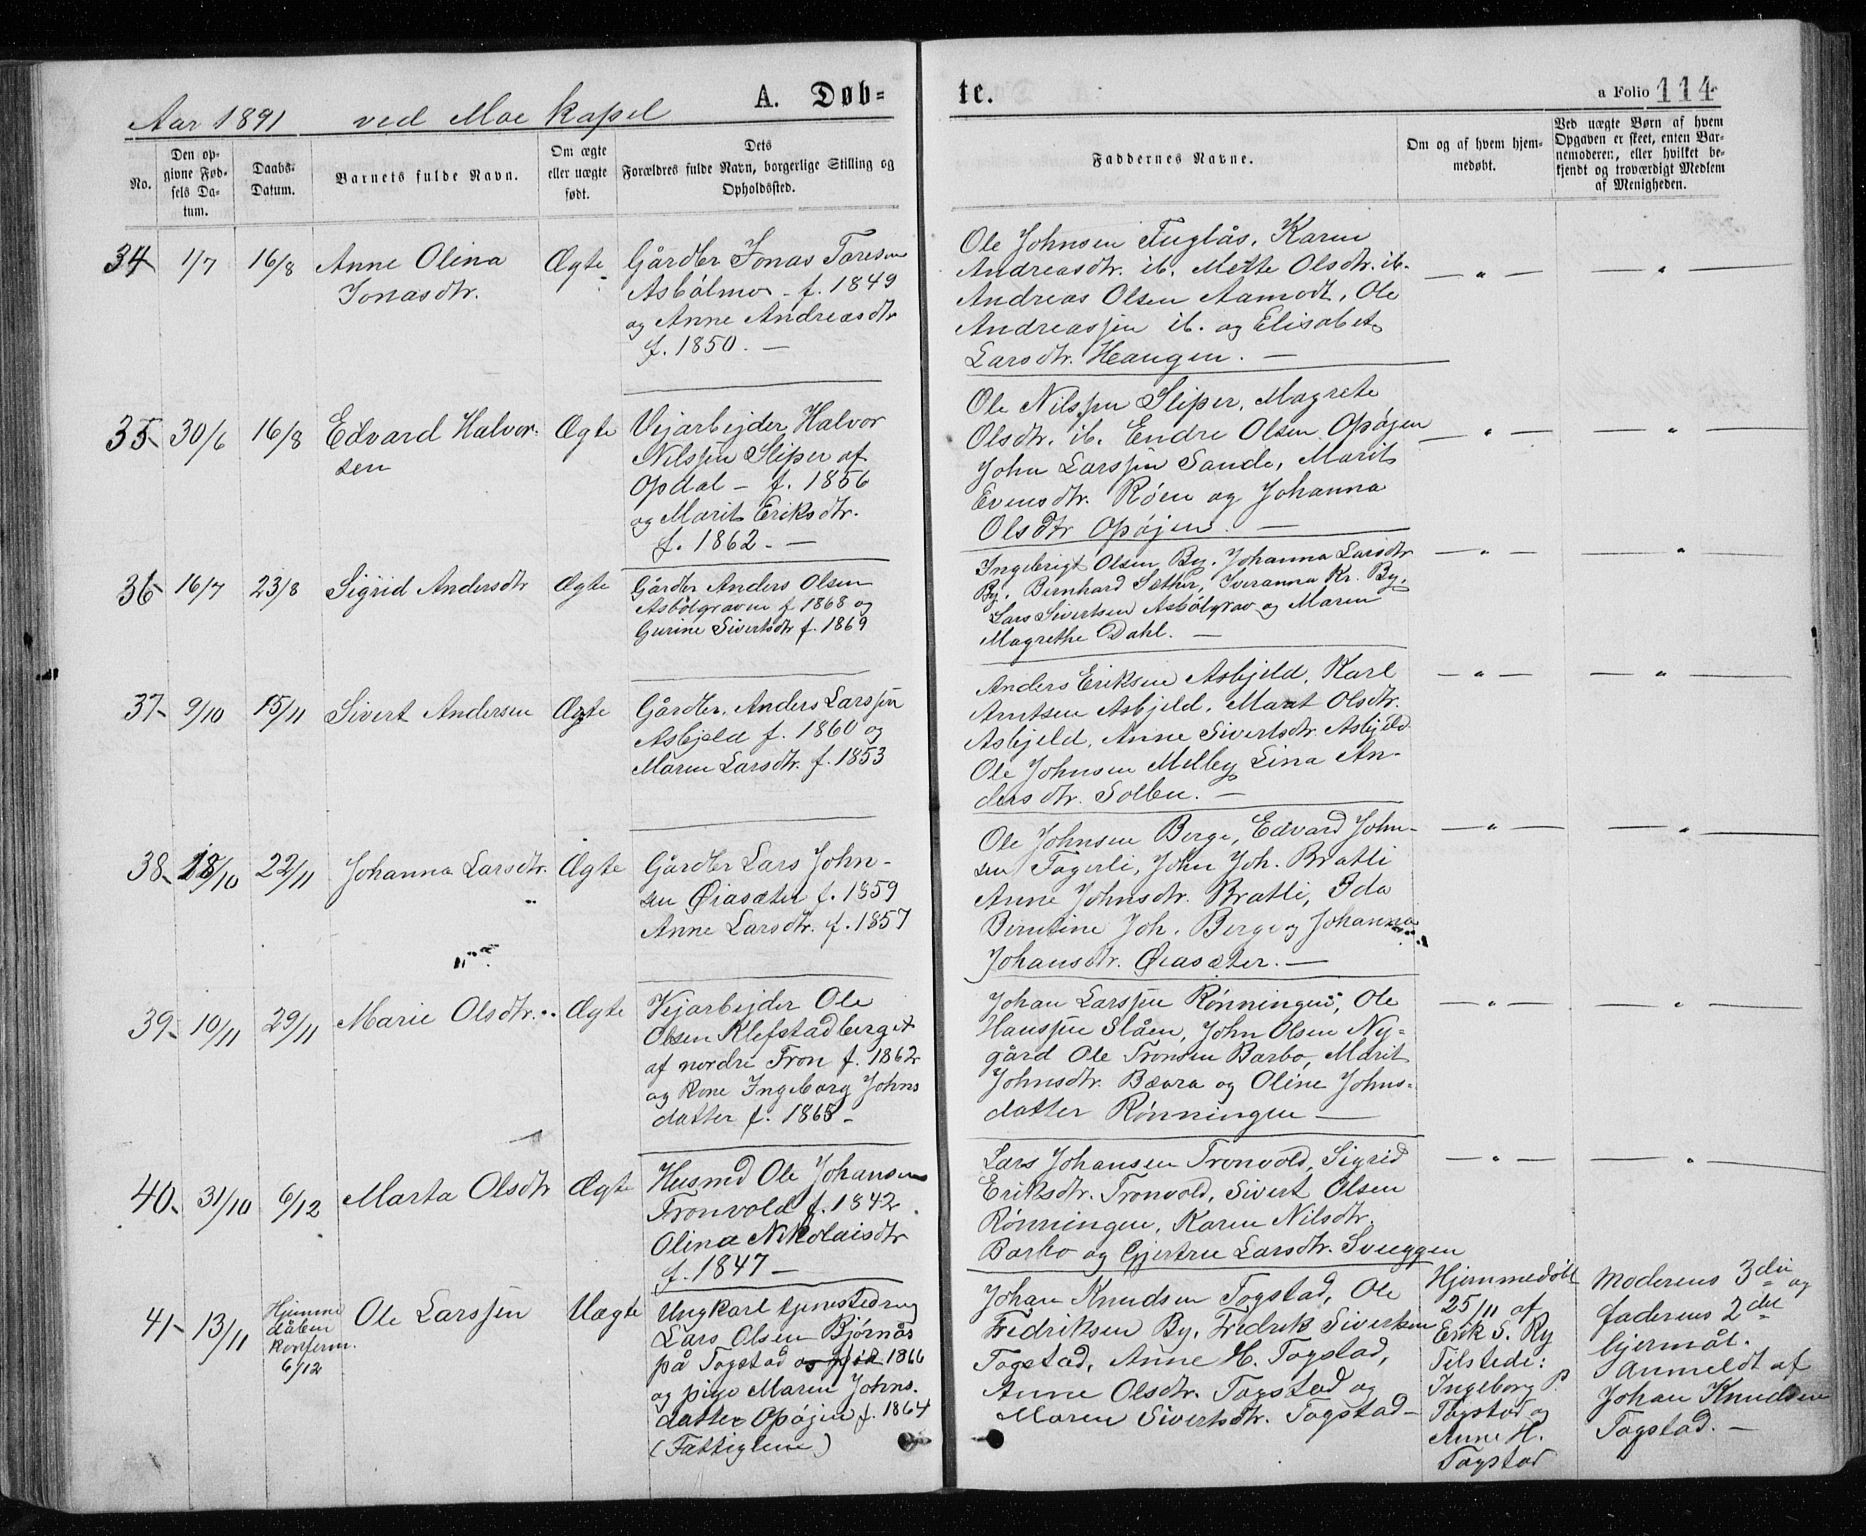 Aar 1891 ved Moe kapel
A. Døb-
te.
a Folio 114
No.
Den op-
givne Fød-
sels Da-
tum.
Daabs-
Datum.
Barnets fulde Navn.
Om ægte
eller uægte
født.
Dets
Forældres fulde Navn, borgerlige Stilling og
Opholdssted.
Faddernes Navne.
Om og af hvem hjem-
medøbt.
Ved uægte Børn af hvem
Opgaven er skeet, enten Bar-
nemoderen, eller hvilket be-
kjendt og troværdigt Medlem
af Menigheden.
34
1/7
16/8
Anne Olina
Jonasdtr.
Ægte
Gårdbr Jonas Toresen
Asbølmo - f. 1849
og Anne Andreasdtr
f. 1850. —
Ole Johnsen Fuglås, Karen
Andreasdtr. ib. Mette Olsdtr. ib.
Andreas Olsen Aamodt, Ole
Andreassen ib. og Elisabet
Larsdtr. Haugen. —
— " —
— " —
35
30/6
16/8
Edvard Halvor-
sen
Ægte
Vejarbejder Halvor
Nilssen Sliper af
Opdal - f. 1856
og Marit Eriksdtr.
f. 1862. —
Ole Nilssen Sliper, Magrete
Olsdtr. ib. Endre Olsen Opøjen
John Larssen Sande, Marit
Evensdtr. Röen og Johanna
Olsdtr Opøjen. —
— " —
— " —
36
16/7
23/8
Sigrid Andersdtr
Ægte
Gårdbr Anders Olsen
Asbølgraven f 1868 og
Gurine Sivertsdtr f. 1869
Ingebrigt Olsen By, Johanna Larsdtr
By, Bernhard Sæther, Iveranna Kr. By,
Lars Sivertsen Asbölgrav og Maren
Magrethe Dahl. —
— " —
— " —
37
9/10
15/11
Sivert Andersen
Ægte
Gårdbr. Anders Larssen
Asbjeld f. 1860 og
Maren Larsdtr. f. 1853
Anders Eriksen Asbjeld, Karl
Arntsen Asbjeld, Marit Olsdtr.
Asbjeld, Anne Sivertsdtr. Asbjeld
Ole Johnsen Melby Lina An-
dersdtr. Solbu. —
— " —
— " —
38
18/10
22/11
Johanna Larsdtr.
Ægte
Gårdbr Lars John-
sen Øiasæter f. 1859
Anne Larsdtr. f. 1857
Ole Johnsen Berge, Edvard John-
sen Fagerli, John Joh. Bratli
Anne Johnsdtr. Bratli, Ida
Berntine Joh. Berge og Johanna
Johansdtr. Øiasæter. —
— " —
— " —
39
10/11
29/11
Marie Olsdtr.
Ægte
Vejarbejder Ole
Olsen Klefstadberget
af nordre Fron f. 1862
og Kone Ingeborg Johns
datter f. 1865 -
Johan Larssen Rønningen, Ole
Hanssen Slåen, John Olsen Ny-
gård Ole Tronsen Barbo, Marit
Johnsdtr. Bævra og Oline Johns-
datter Rønningen —
— " —
— " —
40
31/10
6/12
Marta Olsdtr
Ægte
Husmd Ole Johansen
Tronvold f. 1842
Olina Nikolaisdtr
f. 1847 —
Lars Johansen Tronvold, Sigrid
Eriksdtr. Tronvold, Sivert Olsen
Rønningen, Karen Nilsdtr.
Barbo og Gjertru Larsdtr. Svuggen
— " —
— " —
41
13/11
Hjemme
dåben
konferm.
6/12
Ole Larssen
Uægte
Ungkarl tjenestedreng
Lars Olsen Bjørnås
på Togstad 1866
og pige Maren Johns-
datter Opøjen f. 1864
(Fattiglem)
Johan Knudsen Togstad, Ole
Fredriksen By, Fredrik Sivertsen
Togstad, Anne H. Togstad,
Anne Olsdtr. Togstad og
Maren Sivertsdtr. Togstad —
Hjemmedöbt
25/11 af
Erik S. Ry
Tilstede:
Ingeborg P.
Togstad og
Anne H.
Togstad
Moderens 3die og
faderens 2det
lejermål.
Anmeldt af
Johan Knudsen
Togstad. —